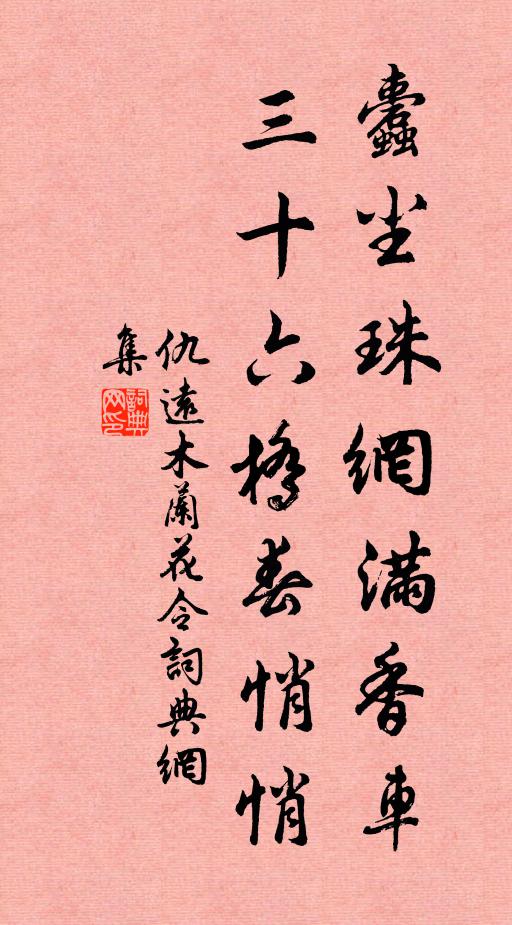 蠹尘珠網满香車
三十六橋春悄悄
仇遠木蘭花令詞典網
集
詞典
网印